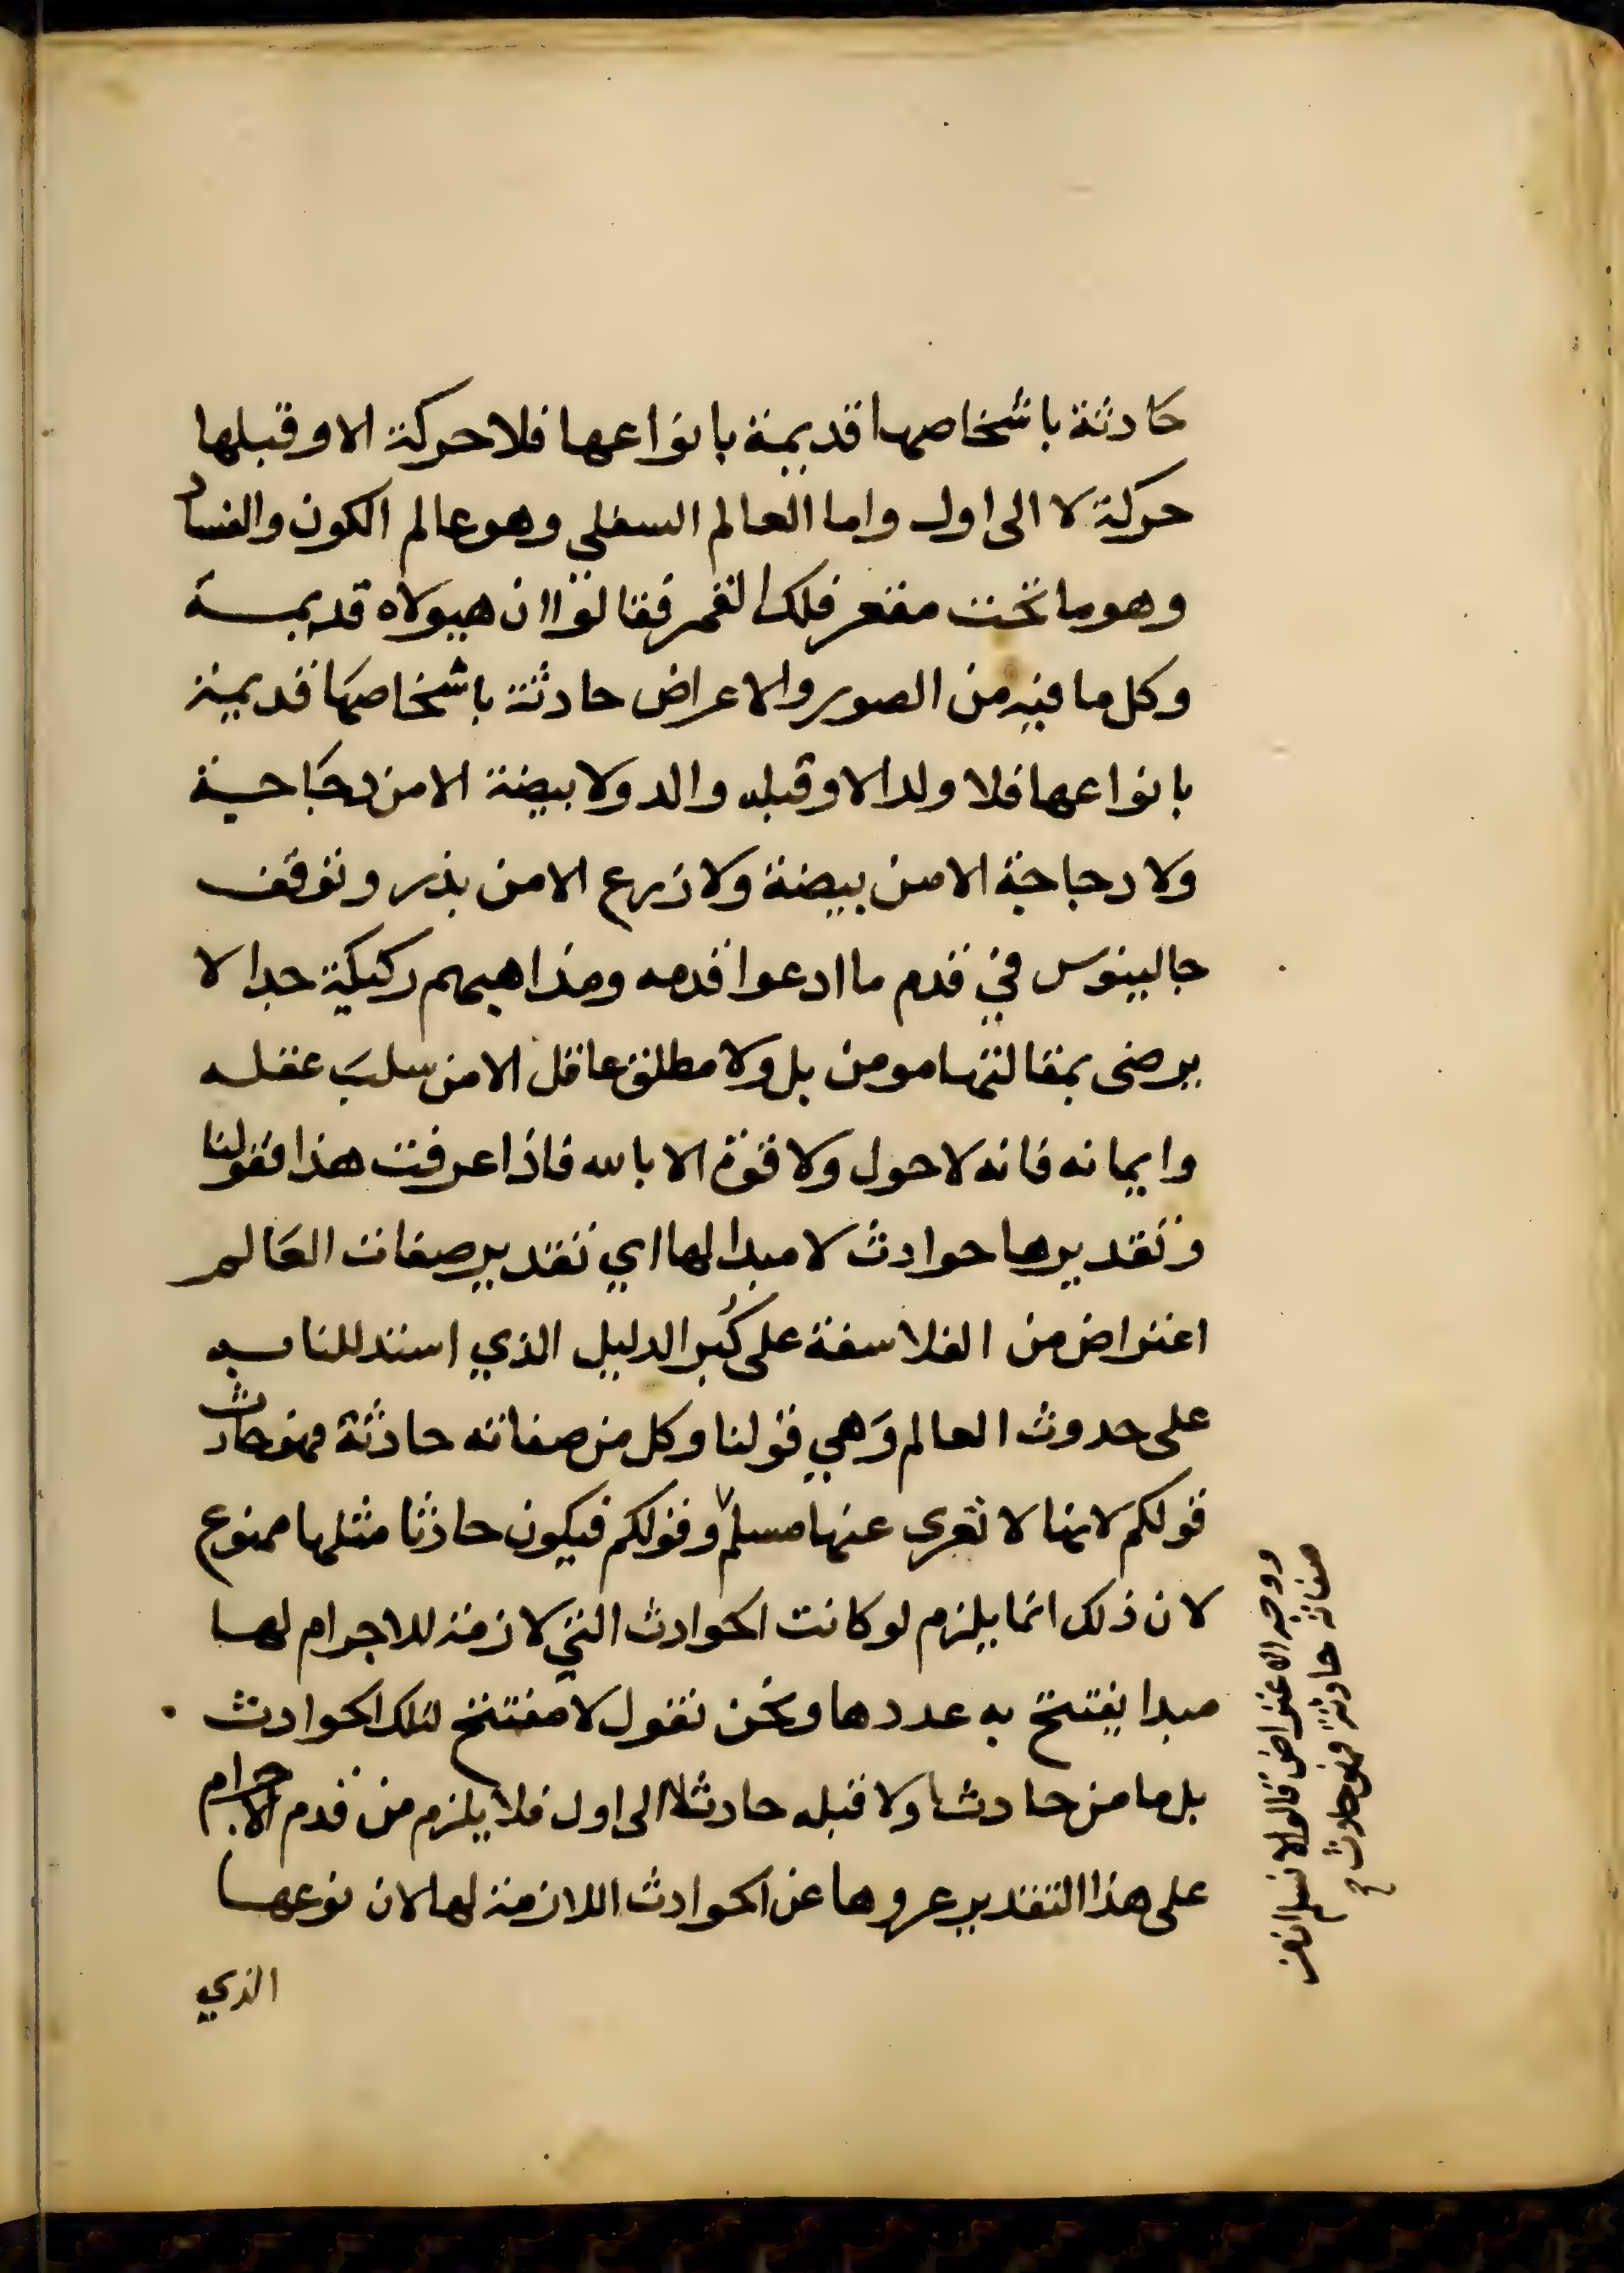 حادثة باشخاصها قديمة بانواعها فلا حركة الا وقبلها
حركة لا الى اول واما العالم السفلي وهو عالم الكون والفساد
وهو ما تحت مقعر فلك القمر فقالوا ان هيولاه قديمة
وكل ما فيه من الصور والاعراض حادثة باشخاصها قديمة
بانواعها فلا ولد الا وقبله والد ولا بيضة الا من دجاجة
ولا دجاجة الا من بيضة ولا زرع الا من بذر وتوقف
جالينوس في قدم ما ادعوا قدمه ومذاهبهم ركيكة جدا لا
يرضى بمقالتها مومن بل ولا مطلق عاقل الا من سلب عقله
وايمانه فانه لا حول ولا قوة الا بالله فاذا عرفت هذا فقولنا
وتقديرها حوادث لا مبدا لها اي تقدير صفات العالم
اعتراض من الفلاسفة على كبر الدليل الذي استدللنا به
على حدوث العالم وهي قولنا وكل من صفاته حادثة فهو حادث
قولكم لانها لا تعرى عنها مسلم وقولكم فيكون حادثا مثلها ممنوع
لان ذلك انما يلزم لو كانت الحوادث التي لازمة للاجرام لها
مبدا يفتتح به عددها ونحن نقول لا مفتتح لتلك الحوادث
بل ما من حادث الا وقبله حادث لا الى اول فلا يلزم من قدم الاجرام
على هذا التقدير عروها عن الحوادث اللازمة لها لان نوعها
الذي
ووجه الاعتراض قالوا لا نسلم ان من
صفاته حادثة فهو حادث صح